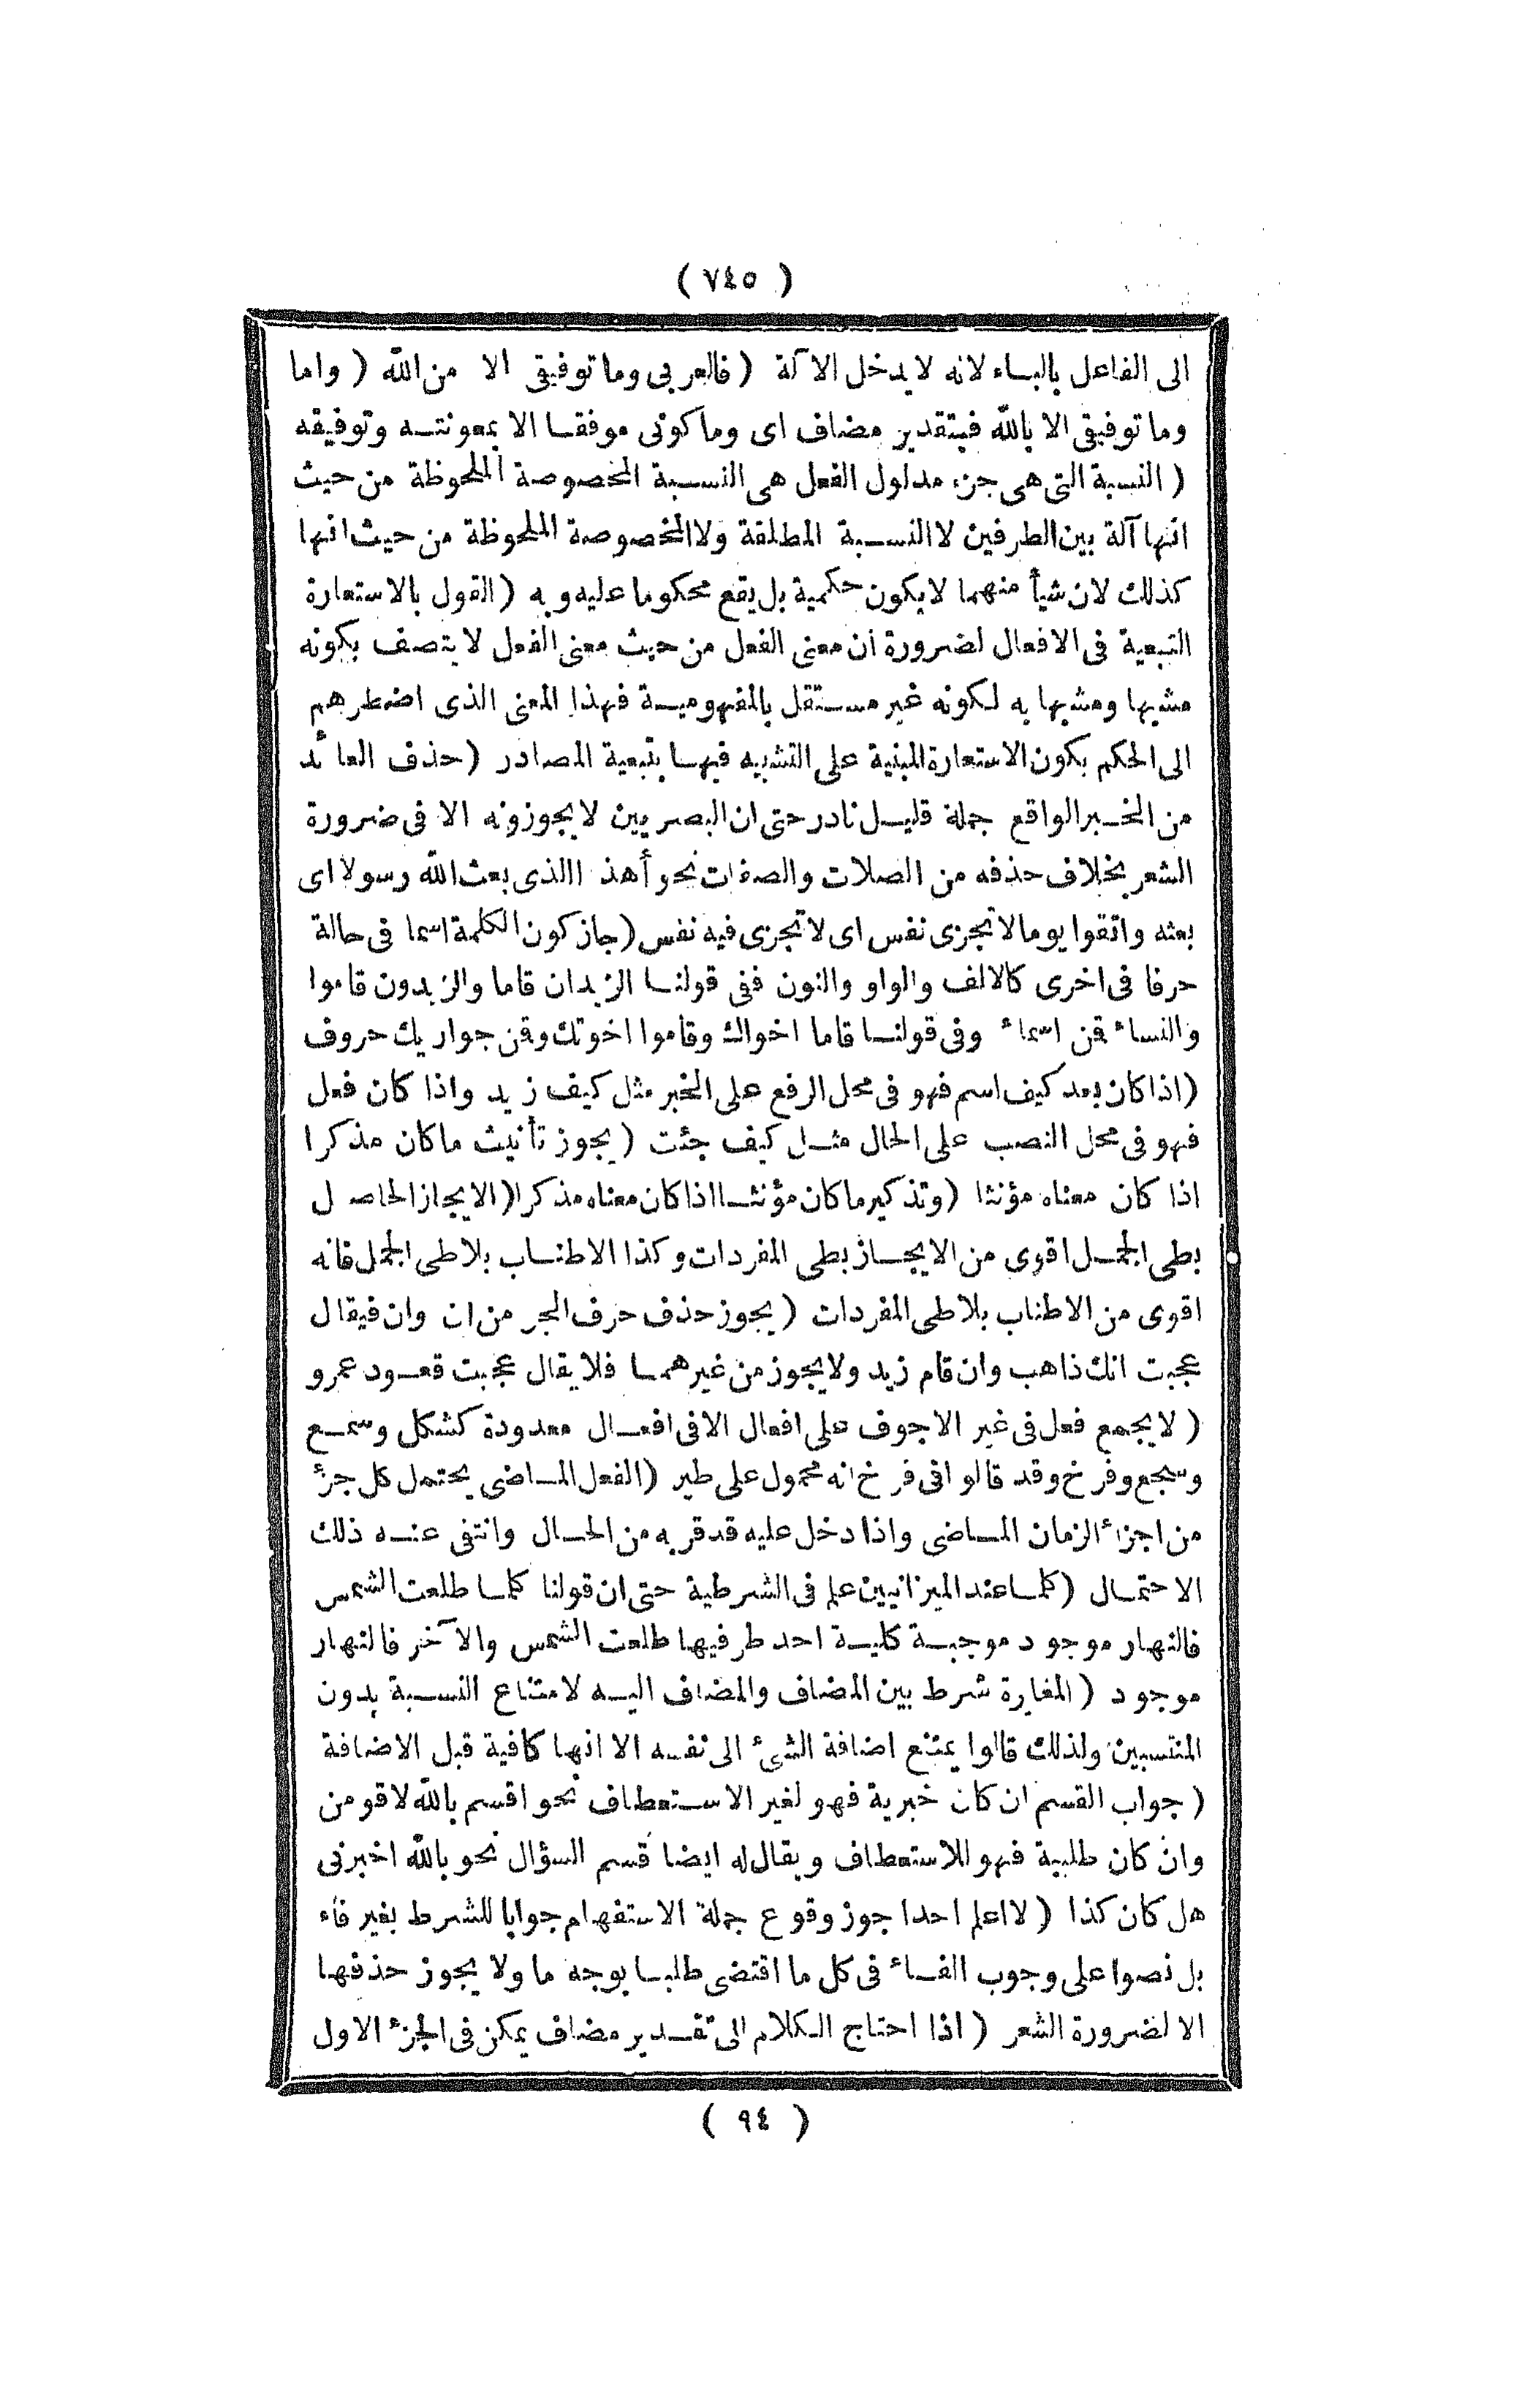 ( ٧٤٥ )
الى الفاعل بالباء لانه لا يدخل الا آلة ( فالعربى وما توفيقى الا من الله ( واما
وما توفيقى الا بالله فبتقدير مضاف اى وما كونى موفقا الا بمعونته وتوفيقه
( النسبة التى هى جزء مدلول الفعل هى النسبة المخصوصة الملحوظة من حيث
انها آلة بين الطرفين لا النسبة المطلقة ولا المخصوصة الملحوظة من حيث انها
كذلك لان شيأ منهما لا يكون حكمية بل يقع محكوما عليه وبه ( القول بالاستعارة
التبعية فى الافعال لضرورة أن معنى الفعل من حيث معنى الفعل لا يتصف بكونه
مشبها ومشبها به لكونه غير مستقل بالمفهومية فهذا المعنى الذى اضطرهم
الى الحكم بكون الاستعارة المبنية على التشبيه فيها بتبعية المصادر ( حذف العائد
من الخبر الواقع جملة قليل نادر حتى ان البصريين لا يجوزونه الا فى ضرورة
الشعر بخلاف حذفه من الصلات والصفات نحو أهذا الذى بعث الله رسولا اى
بعثه واتقوا يوما لا تجزى نفس اى لا تجزى فيه نفس ( جاز كون الكلمة اسما فى حالة
حرفا فى اخرى كالالف والواو والنون ففى قولنا الزيدان قاما والزيدون قاموا
والنساء قمن اسماء وفى قولنا قاما اخواك وقاموا اخوتك وقن جواريك حروف
( اذا كان بعد كيف اسم فهو فى محل الرفع على الخبر مثل كيف زيد واذا كان فعل
فهو فى محل النصب على الحال مثل كيف جئت ( يجوز تأنيث ما كان مذكرا
اذا كان معناه مؤنثا ( وتذكير ما كان مؤنثا اذا كان معناه مذكرا ( الايجاز الحاصل
بطى الجمل اقوى من الايجاز بطى المفردات وكذا الاطناب بلا طى الجمل فانه
اقوى من الاطناب بلا طى المفردات ( يجوز حذف حرف الجر من ان وان فيقال
عجبت انك ذاهب وان قام زيد ولا يجوز من غيرهما فلا يقال عجبت قعود عمرو
( لا يجمع فعل فى غير الاجوف على افعال الا فى افعال معدودة كشكل وسمع
وسجع وفرخ وقد قالوا فى فرخ انه محمول على طير ( الفعل الماضى يحتمل كل جزء
من اجزاء الزمان الماضى واذا دخل عليه قد قربه من الحال وانتفى عنه ذلك
الاحتمال ( كلما عند الميزانيين علم فى الشرطية حتى ان قولنا كلما طلعت الشمس
فالنهار موجود موجبة كلية احد طرفيها طلعت الشمس والآخر فالنهار
موجود ( المغايرة شرط بين المضاف والمضاف اليه لامتناع النسبة بدون
المنتسبين ولذلك قالوا يمتنع اضافة الشئ الى نفسه الا انها كافية قبل الاضافة
( جواب القسم ان كان خبرية فهو لغير الاستعطاف نحو اقسم بالله لاقومن
وان كان طلبية فهو للاستعطاف ويقال له ايضا قسم السؤال نحو بالله اخبرنى
هل كان كذا ( لا اعلم احدا جوز وقوع جملة الاستفهام جوابا للشرط بغير فاء
بل نصوا على وجوب الفاء فى كل ما اقتضى طلبا بوجه ما ولا يجوز حذفها
الا لضرورة الشعر ( اذا احتاج الكلام الى تقدير مضاف يمكن فى الجزء الاول
( ٩٤ )